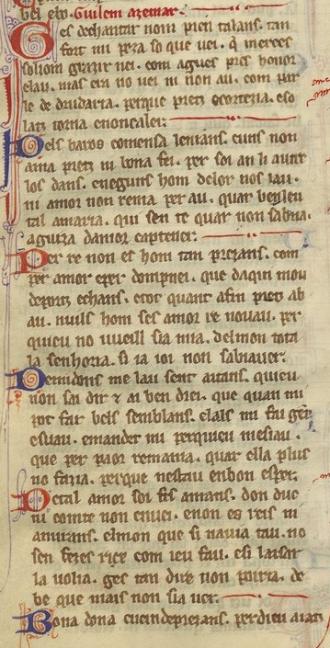 bel ero. Guilem azemar.
Ges dechantar nom pren talans. tan
fort mi peza so que vei. q̄ metres
soliom grazir nei. com agues pres honor
e lau. mas er no vei ni non au. com par
le de drudaria. perque pretz ecortezia. eso
latz torna enoncaler.
Dels baros comensa lenians. cuns non
ama pretz ni bona fei. per soi an li autre
los dans. eneguns hom delor nos lau.
ni amor non rema per au. quar
tal amaria. qui sen te quar non sabria.
aguiza damor captener.
Per re non es hom tan prezans. com
per amor e per dompnei. que daqui mou
deportz echans. e tot quant a fin pretz ab
au. nuills hom ses amor re no vau. per
quieu no vuelll sia mia. del mon tota
la senhoria. si ia ioi non sabia aver.
De midons me lau sent aitans. quieu
non sai dir & ai ben drei. que quan mi
pot far bels semblans. elals mi fui gen
esuau. emandet mi perquieu mestau.
que per paor remania. quar ella plus
no faria. perque nestau enbon esper.
De tal amor soi fis amans. don duc
ni comte non envei. e non es reis ni
amirans. el mon que si navia tau. no
sen fezes rics com ieu fau. e si lauzar
la volia. ges tan dire non poiria. de
be que mais non sia ver.
Bona dona cuein deprezans. per dieu aiatz